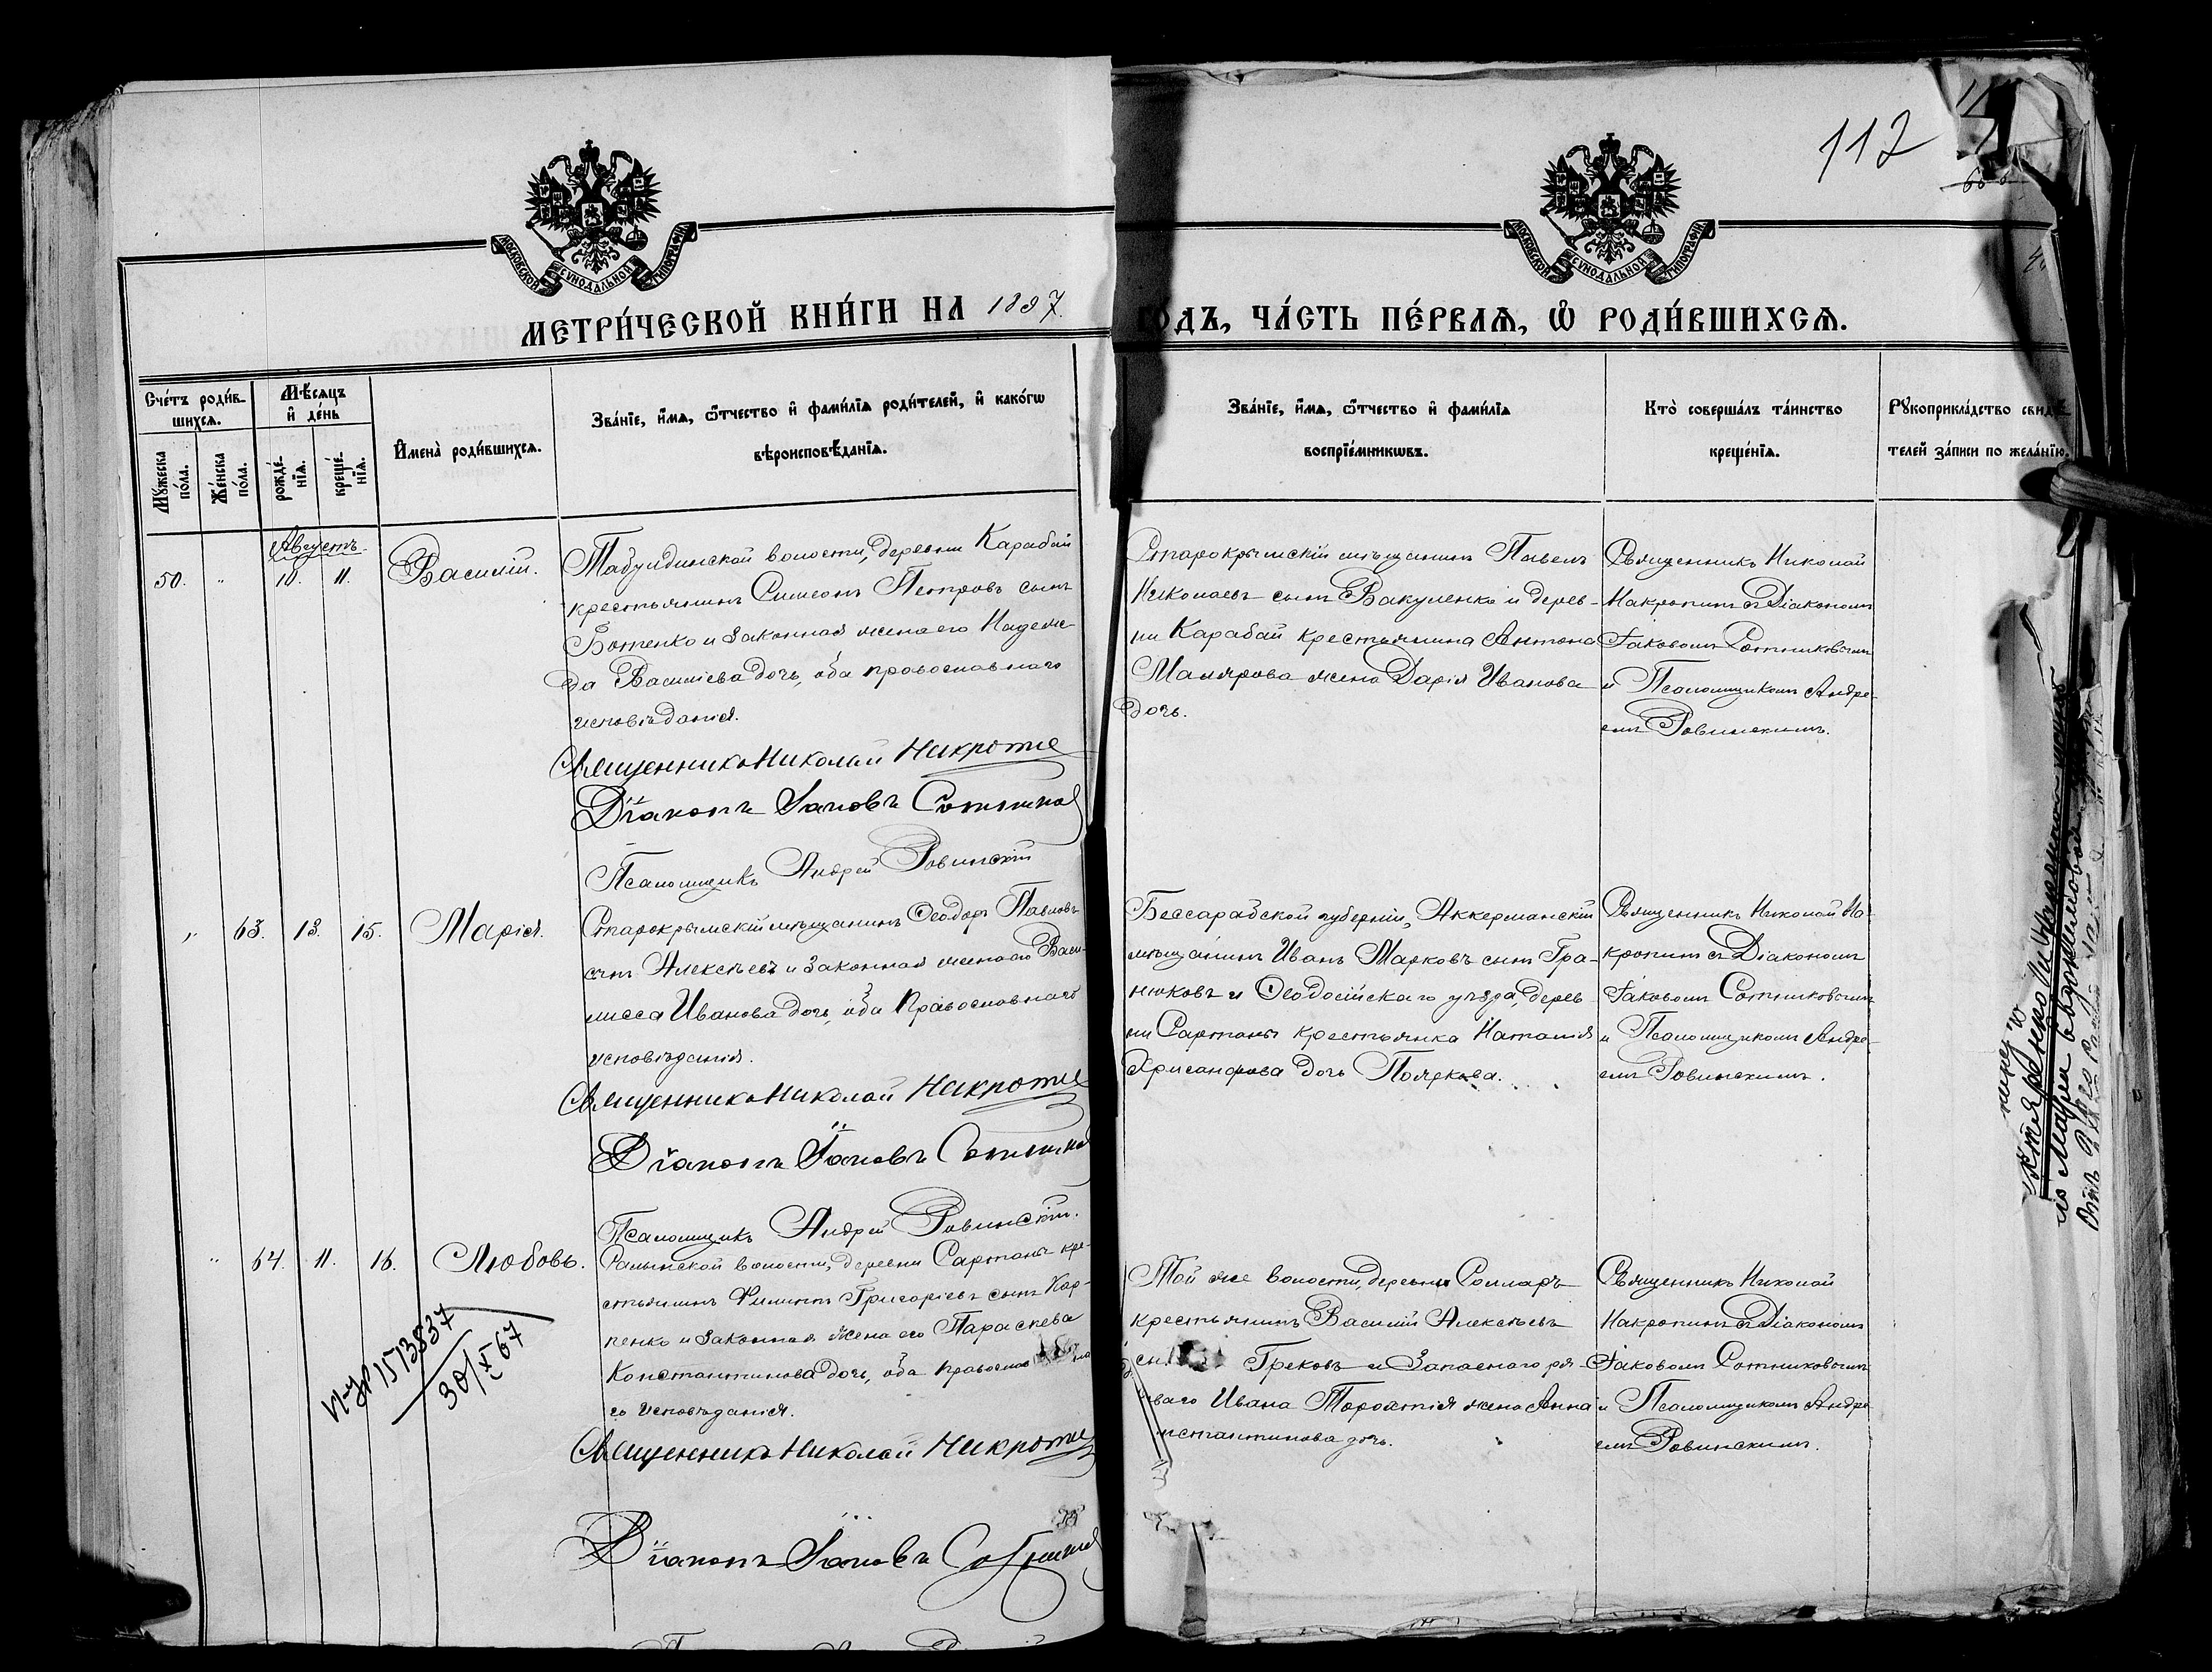 112
МОСКОВСКОЙ СѴНОДАЛЬНОЙ ТИПОГРАФІИ
МОСКОВСКОЙ СѴНОДАЛЬНОЙ ТИПОГРАФІИ
МЕТРИ́ЧЕСКОЙ КНИ́ГИ НА 1897
ГО́ДЪ, ЧА́СТЬ ПЕ́РВАѦ, Ѡ҆ РОДИ́ВШИХСѦ.
Сче́тъ роди́в-
шихсѧ.
Мꙋ́жеска
по́ла.
Же́нска
по́ла.
Мѣ́сѧцъ
и҆ де́нь
рожде́-
нїѧ.
креще́-
нїѧ.
И҆мена̀ роди́вшихсѧ.
Зва́нїе, и҆́мѧ, ѻ҆́тчество и҆ фами́лїѧ роди́телей, и҆ како́гѡ
вѣроисповѣ́данїѧ.
Зва́нїе, и҆́мѧ, ѻ҆́тчество и҆ фами́лїѧ
воспрїе́мникѡвъ.
Кто̀ соверша́лъ та́инство
креще́нїѧ.
Рꙋкоприкла́дство свидѣ́-
телей за́писи по жела́нїю.
Августъ.
50. " 10. 11. Василій.
Табулдинской волости, деревни Карабай
крестьянинъ Симеонъ Петровъ сынъ
Ботенко и законная жена его Надеж-
да Васильева дочь, оба православнаго
исповѣданія.
Священникъ Николай Накропин
Діаконъ Іаковъ Сотников
Псаломщикъ Андрей Ровинскій
Старокрымскій мѣщанинъ Павелъ
Николаевъ сынъ Вакуленко и дерев-
ни Карабай крестьянина Антона
Малярова жена Дарія Иванова
дочь.
Священникъ Николай
Накропинъ съ Діакономъ
Іаковомъ Сотниковымъ
и Псаломщикомъ Андре-
емъ Ровинскимъ.
" 63. 13. 15. Марія.
Старокрымскій мѣщанинъ Ѳеодоръ Павловъ
сынъ Алексѣевъ и законная жена его Васи-
лисса Иванова дочь, оба Православнаго
исповѣданія.
Священникъ Николай Накропин
Діаконъ Іаковъ Сотников
Псаломщикъ Андрей Ровинскій.
Бессарабской губерніи, Аккерманскій
мѣщанинъ Иванъ Марковъ сынъ Гра-
нюковъ и Ѳеодосійскаго уѣзда, дерев-
ни Сартаны крестьянка Наталія
Хрисанфова дочь Полякова.
Священникъ Николай На-
кропинъ съ Діакономъ
Іаковомъ Сотниковымъ
и Псаломщикомъ Андре-
емъ Ровинскимъ.
" 64. 11. 16. Любовь.
Салынской волости, деревни Сартаны кре-
стьянинъ Филиппъ Григорьевъ сынъ Кар-
пенко и законная жена его Параскева
Константинова дочь, оба православна
го исповѣданія.
Священникъ Николай Накропин
Діаконъ Іаковъ Сотников
Той же волости, деревни Солларъ
крестьянинъ Василій Алексѣевъ
сы Грековъ и Запаснаго ря-
ваго Ивана жена Анна
нстантинова дочь.
Священникъ Николай
Накропинъ съ Діакономъ
Іаковомъ Сотниковымъ
и Псаломщикомъ Андре
емъ Ровинскимъ.
1513837
30/X 67